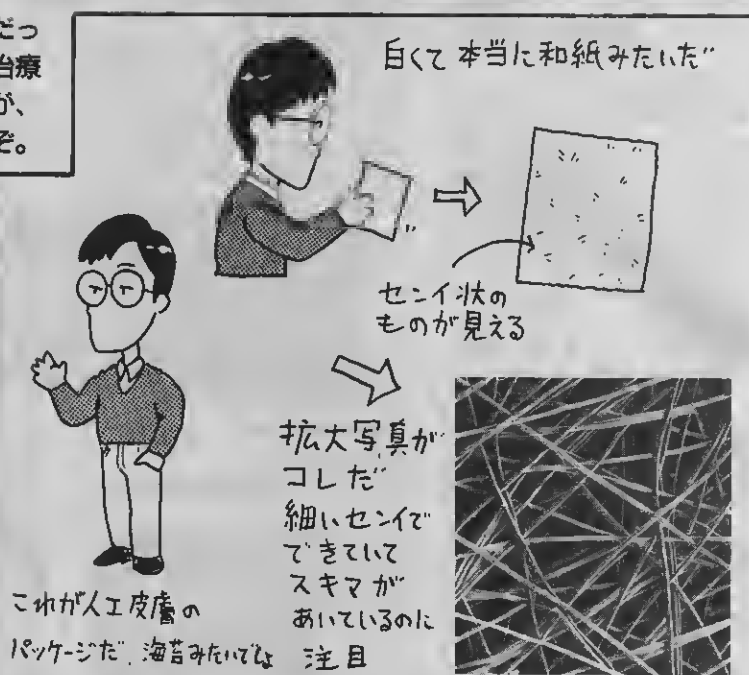 だっ
治療
が、
ぞ。
白くて本当に和紙みたいだ
センイ状の
ものが見える
拡大写真が
コレだ
細いセンイで
できていて
スキマが
あいているのに
注目
これが人工皮膚の
パッケージだ、海苔みたいでしょ